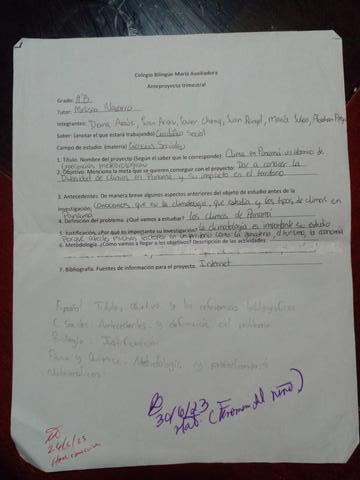 Colegio Bilingüe María Auxiliadora
Anteproyecto trimestral
Grado: 
Tutor: Melissa Navarro
Integrantes: Diana
Saber: (anotar el que está trabajando) Científico Social
Campo de estudio: (materia) Ciencias Sociales
1. Título. Nombre del proyecto (Según el saber que le corresponde): Clima en Panamá
2. Objetivo. Menciona la meta que se quieren conseguir con el proyecto: Dar a conocer la
Diversidad de climas en Panamá y su impacto en el territorio
3. Antecedentes. De manera breve algunos aspectos anteriores del objeto de estudio antes de la
investigación: Conocemos que es la climatología, que estudia y los tipos de climas en
Panamá
4. Definición del problema. ¿Qué vamos a estudiar? los climas de Panamá
5. Justificación. ¿Por qué es importante su investigación? la climatología es importante su estudio
Porque afecta muchos sectores en territorio como la ganadería, el turismo, la economía
6. Metodología. ¿Cómo vamos a llegar a los objetivos? Descripción de las actividades
7. Bibliografía. Fuentes de información para el proyecto. Internet
Español: Título, objetivo y las referencias bibliográficas
C. Sociales: Antecedentes y definición del problema
Biología: Justificación
Física y Química: Metodología y
Matemáticas:
30/6/23
(Fenómeno del niño)